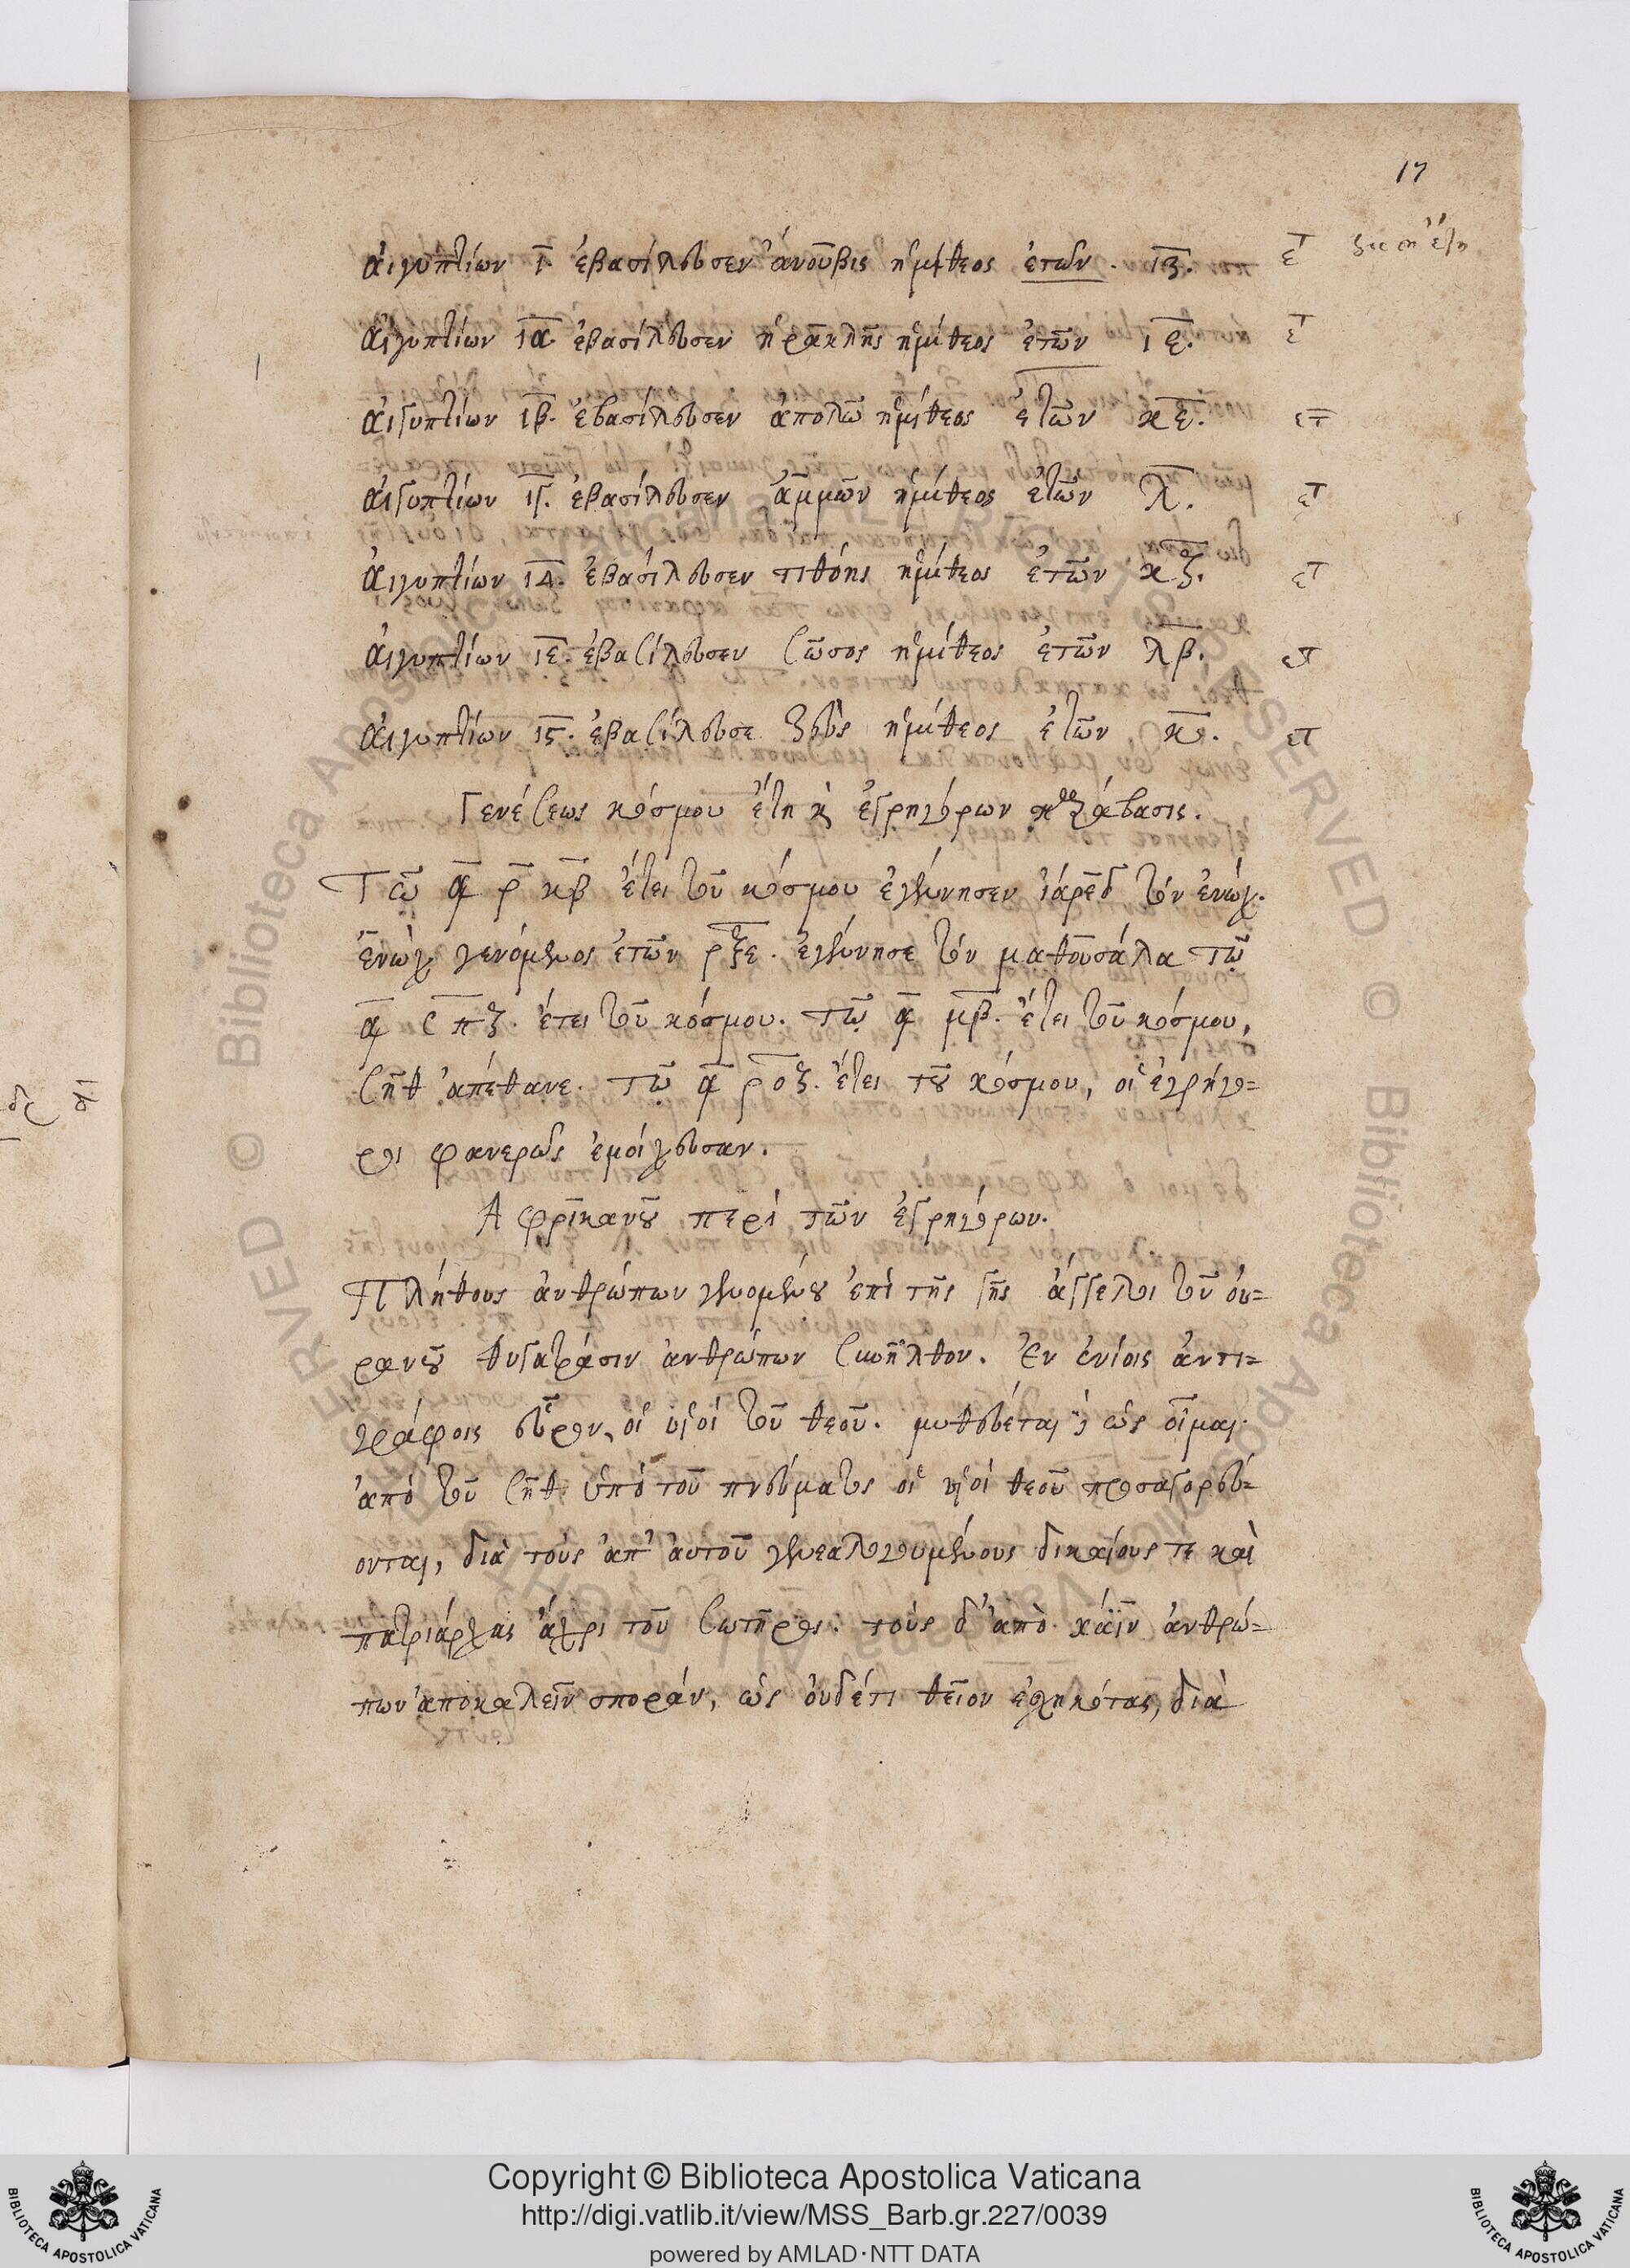 17
αἰγυπτίων ι. ἐβασίλευσεν ἀνοῦβις ἡμίθεος ἐτῶν. ιζ.
αἰγυπτίων ια. ἐβασίλευσεν ἡρακλῆς ἡμίθεος ἐτῶν ιε.
αἰγυπτίων ιβ. ἐβασίλευσεν ἀπολῶ ἡμίθεος ἐτῶν κε.
αἰγυπτίων ιγ. ἐβασίλευσεν ἄμμων ἡμίθεος ἐτῶν λ.
αἰγυπτίων ιδ. ἐβασίλευσεν τιθόης ἡμίθεος ἐτῶν κζ.
αἰγυπτίων ιε. ἐβασίλευσεν σῶσος ἡμίθεος ἐτῶν λβ.
αἰγυπτίων ις. ἐβασίλευσε ζεὺς ἡμίθεος ἐτῶν κ.
Γενέσεως κόσμου ἔτη κ ἐγρηγόρων κατάβασις.
Τῷ α ρ κβ ἔτει τοῦ κόσμου ἐγέννησεν ἰάρεδ τὸν ἐνώχ.
ἐνὼχ γενόμενος ἐτῶν ρξε. ἐγέννησε τὸν μαθουσάλα τῷ
α σ πζ. ἔτει τοῦ κόσμου. τῷ α μβ. ἔτει τοῦ κόσμου,
σὴθ ἀπέθανε. τῷ α ροζ. ἔτει τοῦ κόσμου, οἱ ἐγρήγο=
ροι φανερῶς ἐμοίχευσαν.
Ἀφρικανοῦ περὶ τῶν ἐγρηγόρων.
Πλήθους ἀνθρώπων γενομένου ἐπὶ τῆς γῆς ἄγγελοι τοῦ οὐ=
ρανοῦ θυγατράσιν ἀνθρώπων συνῆλθον. Ἐν ἐνίοις ἀντι=
γράφοις εὗρον, οἱ υἱοὶ τοῦ θεοῦ. μυθεύεται ὡς οἶμαι
ἀπὸ τοῦ σὴθ ὑπὸ τοῦ πνεύματος οἱ υἱοὶ θεοῦ προσαγορεύ=
ονται, διὰ τοὺς ἀπ' αὐτοῦ γενεαλογουμένους δικαίους τε καὶ
πατριάρχας ἄχρι τοῦ σωτῆρος. τοὺς δ' ἀπὸ κάϊν ἀνθρώ=
πων ἀποκαλεῖν σποράν, ὡς οὐδέτι θεῖον ἐσχηκότας, διὰ
Copyright © Biblioteca Apostolica Vaticana
http://digi.vatlib.it/view/MSS_Barb.gr.227/0039
powered by AMLAD·NTT DATA
BIBLIOTECA APOSTOLICA VATICANA
BIBLIOTECA APOSTOLICA VATICANA